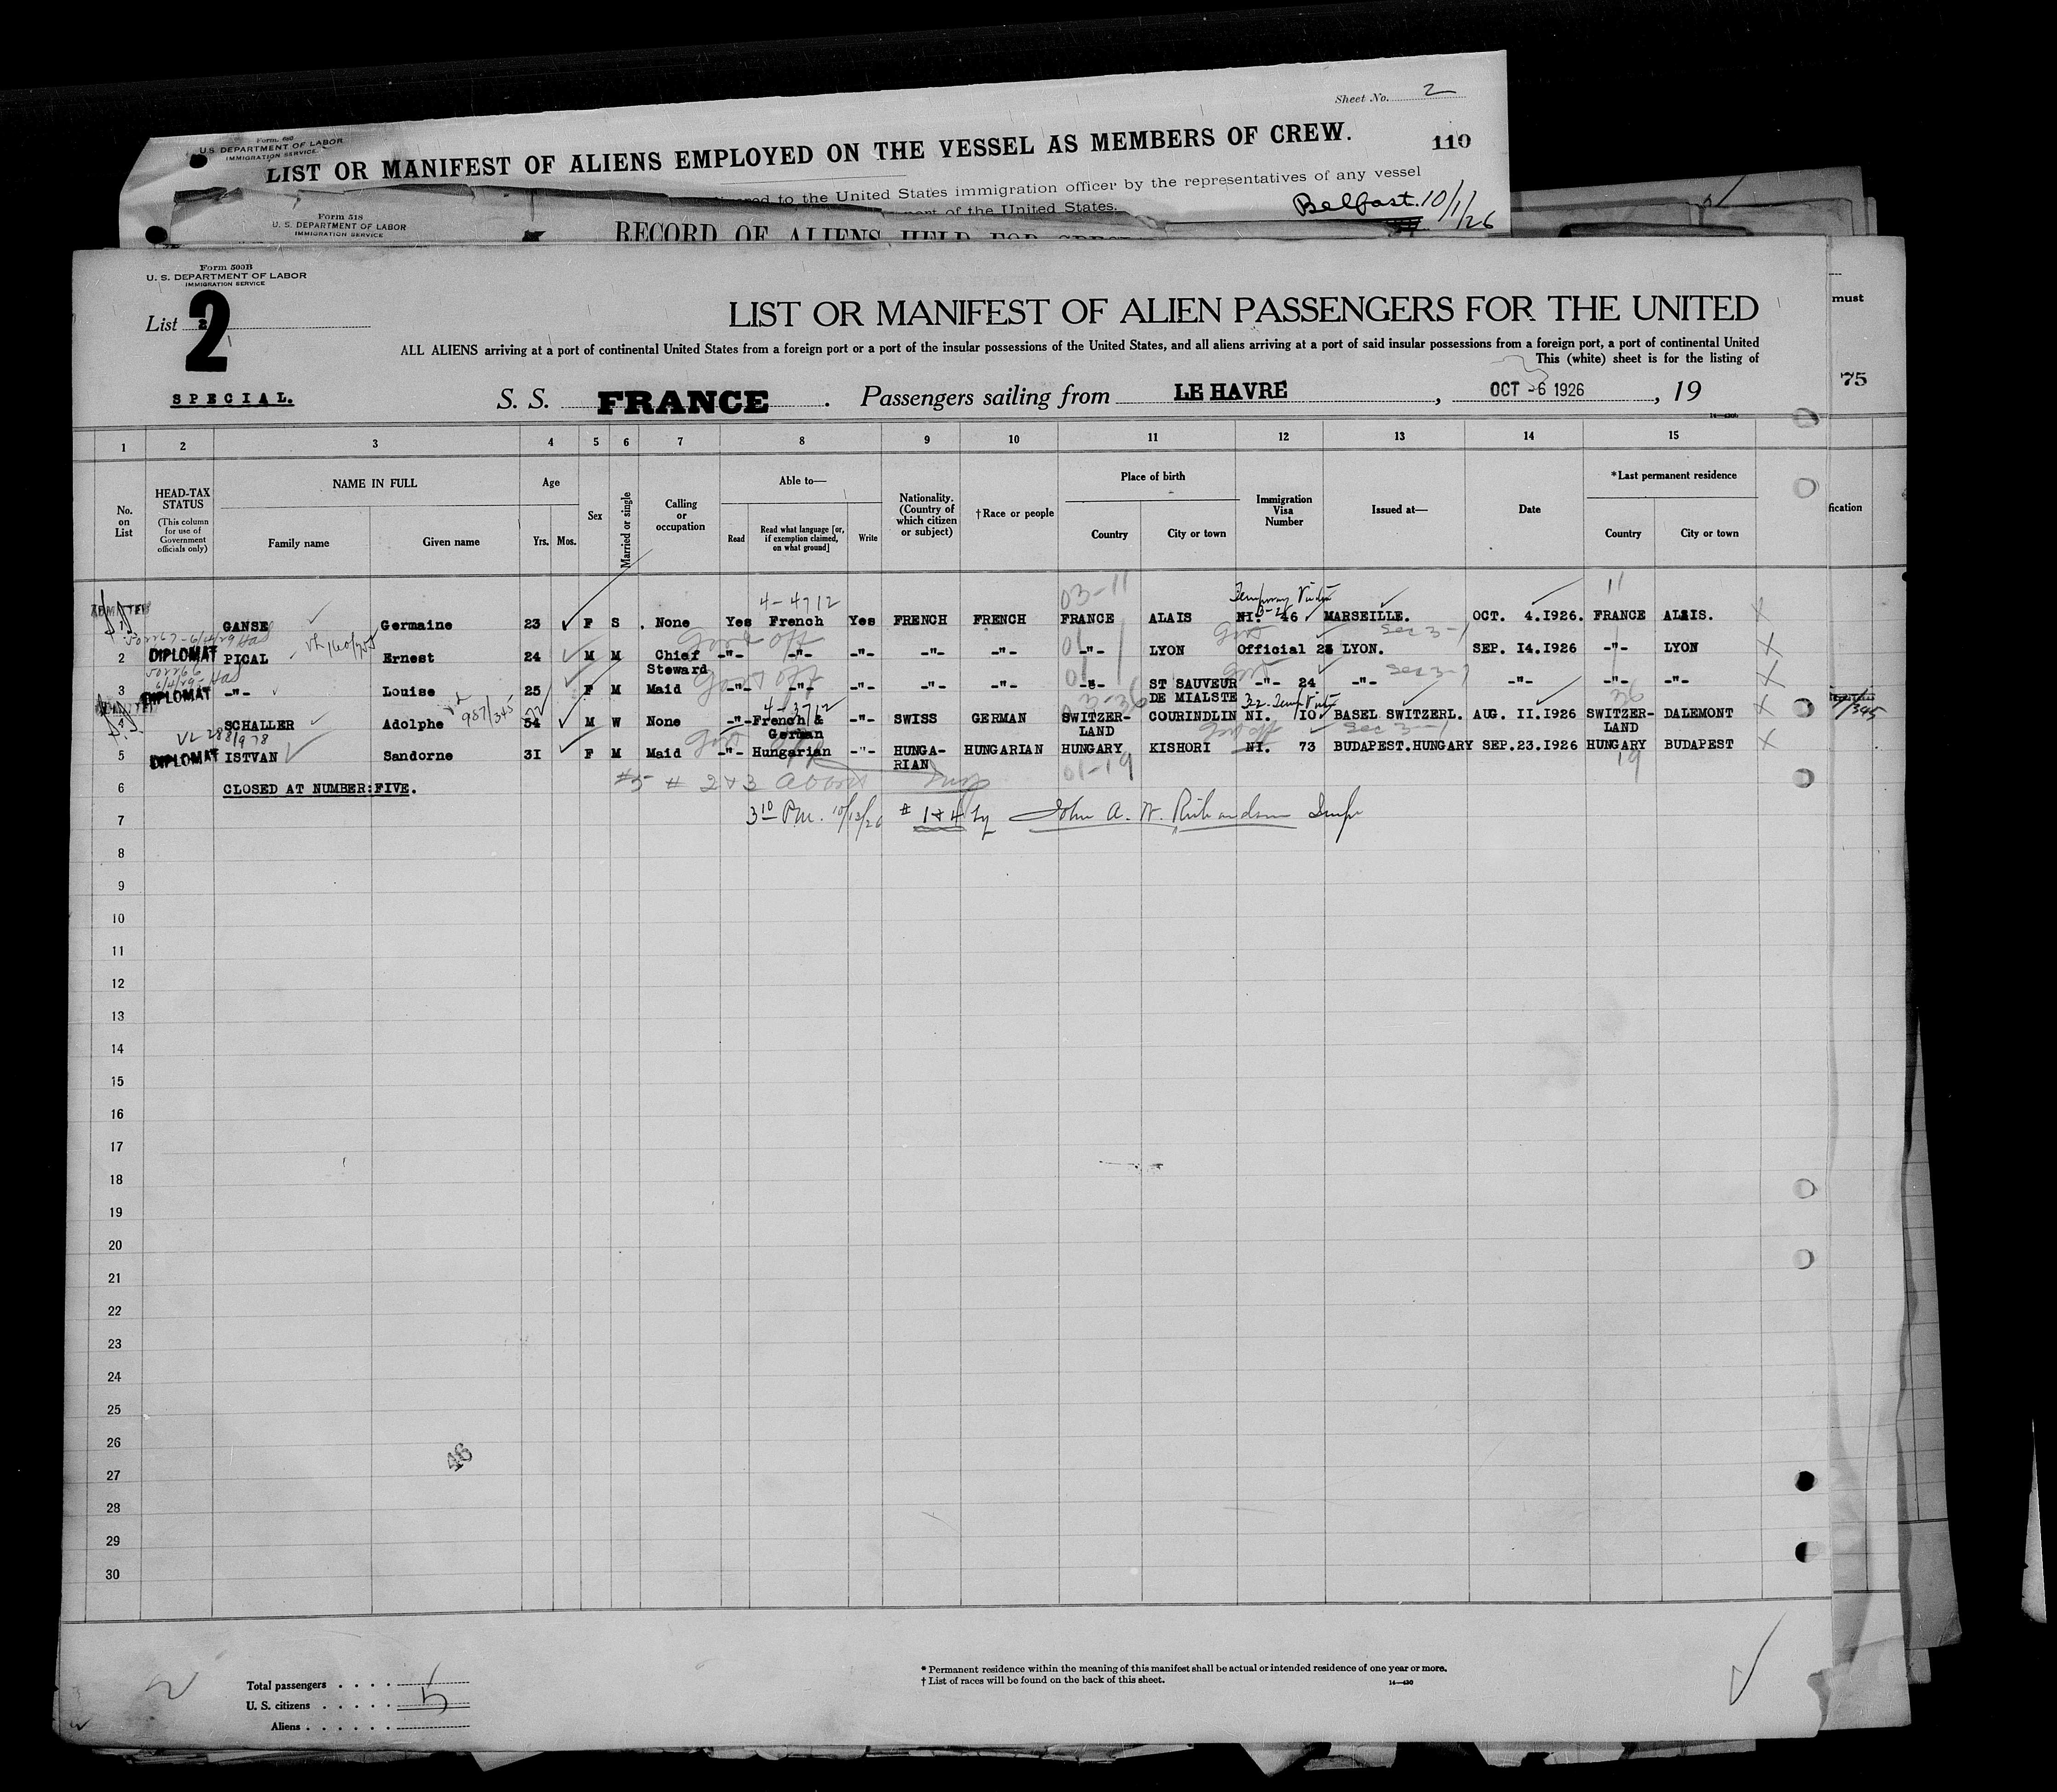 Sheet No. 2
Form 680
U. S. DEPARTMENT OF LABOR
IMMIGRATION SERVICE
LIST OR MANIFEST OF ALIENS EMPLOYED ON THE VESSEL AS MEMBERS OF CREW.
110
to the United States immigration officer by the representatives of any vessel
port of the United States.
Belfast. 10/1/26
Form 518
U. S. DEPARTMENT OF LABOR
IMMIGRATION SERVICE
RECORD OF ALIENS HELD FOR
Form 500B
U. S. DEPARTMENT OF LABOR
IMMIGRATION SERVICE
List 2
2
LIST OR MANIFEST OF ALIEN PASSENGERS FOR THE UNITED
must
ALL ALIENS arriving at a port of continental United States from a foreign port or a port of the insular possessions of the United States, and all aliens arriving at a port of said insular possessions from a foreign port, a port of continental United
This (white) sheet is for the listing of
75
SPECIAL.
S. S. FRANCE. Passengers sailing from LE HAVRE, OCT -6 1926, 19
1 2 3 4 5 6 7 8 9 10 11 12 13 14 15
No. on List
HEAD-TAX STATUS (This column for use of Government officials only)
NAME IN FULL
Family name Given name
Age
Yrs. Mos.
Sex
Married or single
Calling or occupation
Able to—
Read
Read what language [or, if exemption claimed, on what ground]
Write
Nationality. (Country of which citizen or subject)
†Race or people
Place of birth
Country City or town
Immigration Visa Number
Issued at—
Date
*Last permanent residence
Country City or town
fication
03-11 11
4-4712
1 GANSE Germaine 23 F S . None Yes French Yes FRENCH FRENCH FRANCE ALAIS NI. 46 MARSEILLE. OCT. 4.I926. FRANCE ALAIS.
Sec 3-1
2 DIPLOMAT PICAL Ernest 24 M M Chief Steward -"- -"- -"- -"- -"- -"- LYON Official 23 LYON. SEP. I4.I926 -"- LYON
Sec 3-1
3 DIPLOMAT -"- Louise 25 F M Maid -"- -"- -"- -"- -"- -"- ST SAUVEUR DE MIALSTE -"- 24 -"- -"- -"- -"-
4-3712 3-36 36
987/345
4 SCHALLER Adolphe 54 M W None -"- French & German -"- SWISS GERMAN SWITZER-LAND COURINDLIN NI. IO BASEL SWITZERL. AUG. II.I926 SWITZER-LAND DALEMONT
Sec 3-1
5 DIPLOMAT ISTVAN Sandorne 3I F M Maid -"- Hungarian -"- HUNGA-RIAN HUNGARIAN HUNGARY KISHORI NI. 73 BUDAPEST.HUNGARY SEP.23.I926 HUNGARY BUDAPEST
01-19 19
6 CLOSED AT NUMBER:FIVE.
#5 # 2 & 3
7 3 10 P.m. 10/13/26 # 1 & 4 by John A. W. Richardson Insp
8
9
10
11
12
13
14
15
16
17
18
19
20
21
22
23
24
25
26
46
27
28
29
30
Total passengers . . . .
U. S. citizens . . . . . 5
Aliens . . . . . .
* Permanent residence within the meaning of this manifest shall be actual or intended residence of one year or more.
† List of races will be found on the back of this sheet.
14—430